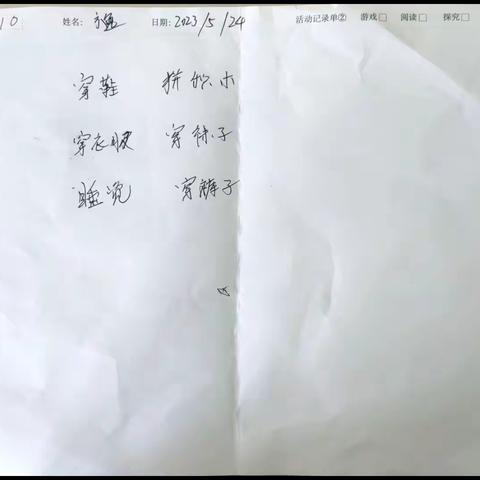 10 姓名: 日期: 2023/5/24 活动记录单② 游戏□ 阅读□ 探究□
穿鞋 拼积木
穿衣服 穿袜子
睡觉 穿裤子